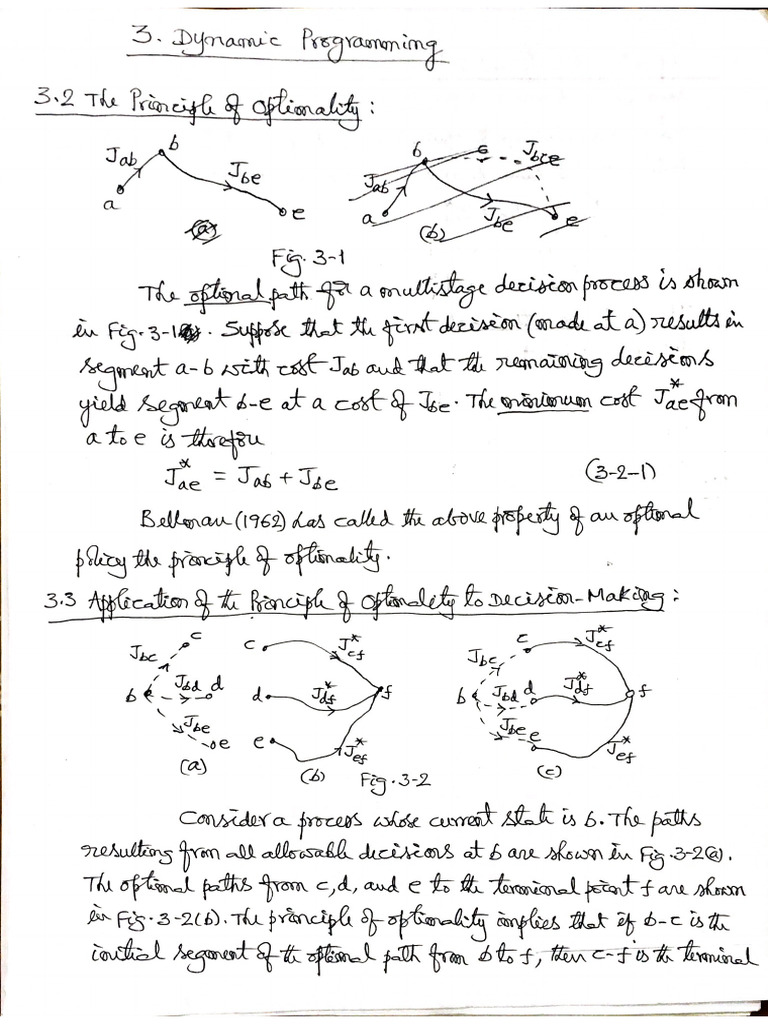 3. Dynamic Programming
3.2 The Principle of Optimality:
Jab b Jbe a e (a)
b c Jbce Jab a Jbe e (b)
Fig. 3-1
The optimal path for a multistage decision process is shown
in Fig. 3-1(a). Suppose that the first decision (made at a) results in
segment a-b with cost Jab and that the remaining decisions
yield segment b-e at a cost of Jbe. The minimum cost J*ae from
a to e is therefore
J*ae = Jab + Jbe (3-2-1)
Bellman (1962) has called the above property of an optimal
policy the principle of optimality.
3.3 Application of the Principle of Optimality to Decision-Making:
Jbc c b Jbd d Jbe e (a)
c J*cf d J*df f e J*ef (b)
Jbc c J*cf b Jbd d J*df f Jbe e J*ef (c)
Fig. 3-2
Consider a process whose current state is b. The paths
resulting from all allowable decisions at b are shown in Fig. 3-2(a).
The optimal paths from c, d, and e to the terminal point f are shown
in Fig. 3-2(b). The principle of optimality implies that if b-c is the
initial segment of the optimal path from b to f, then c-f is the terminal